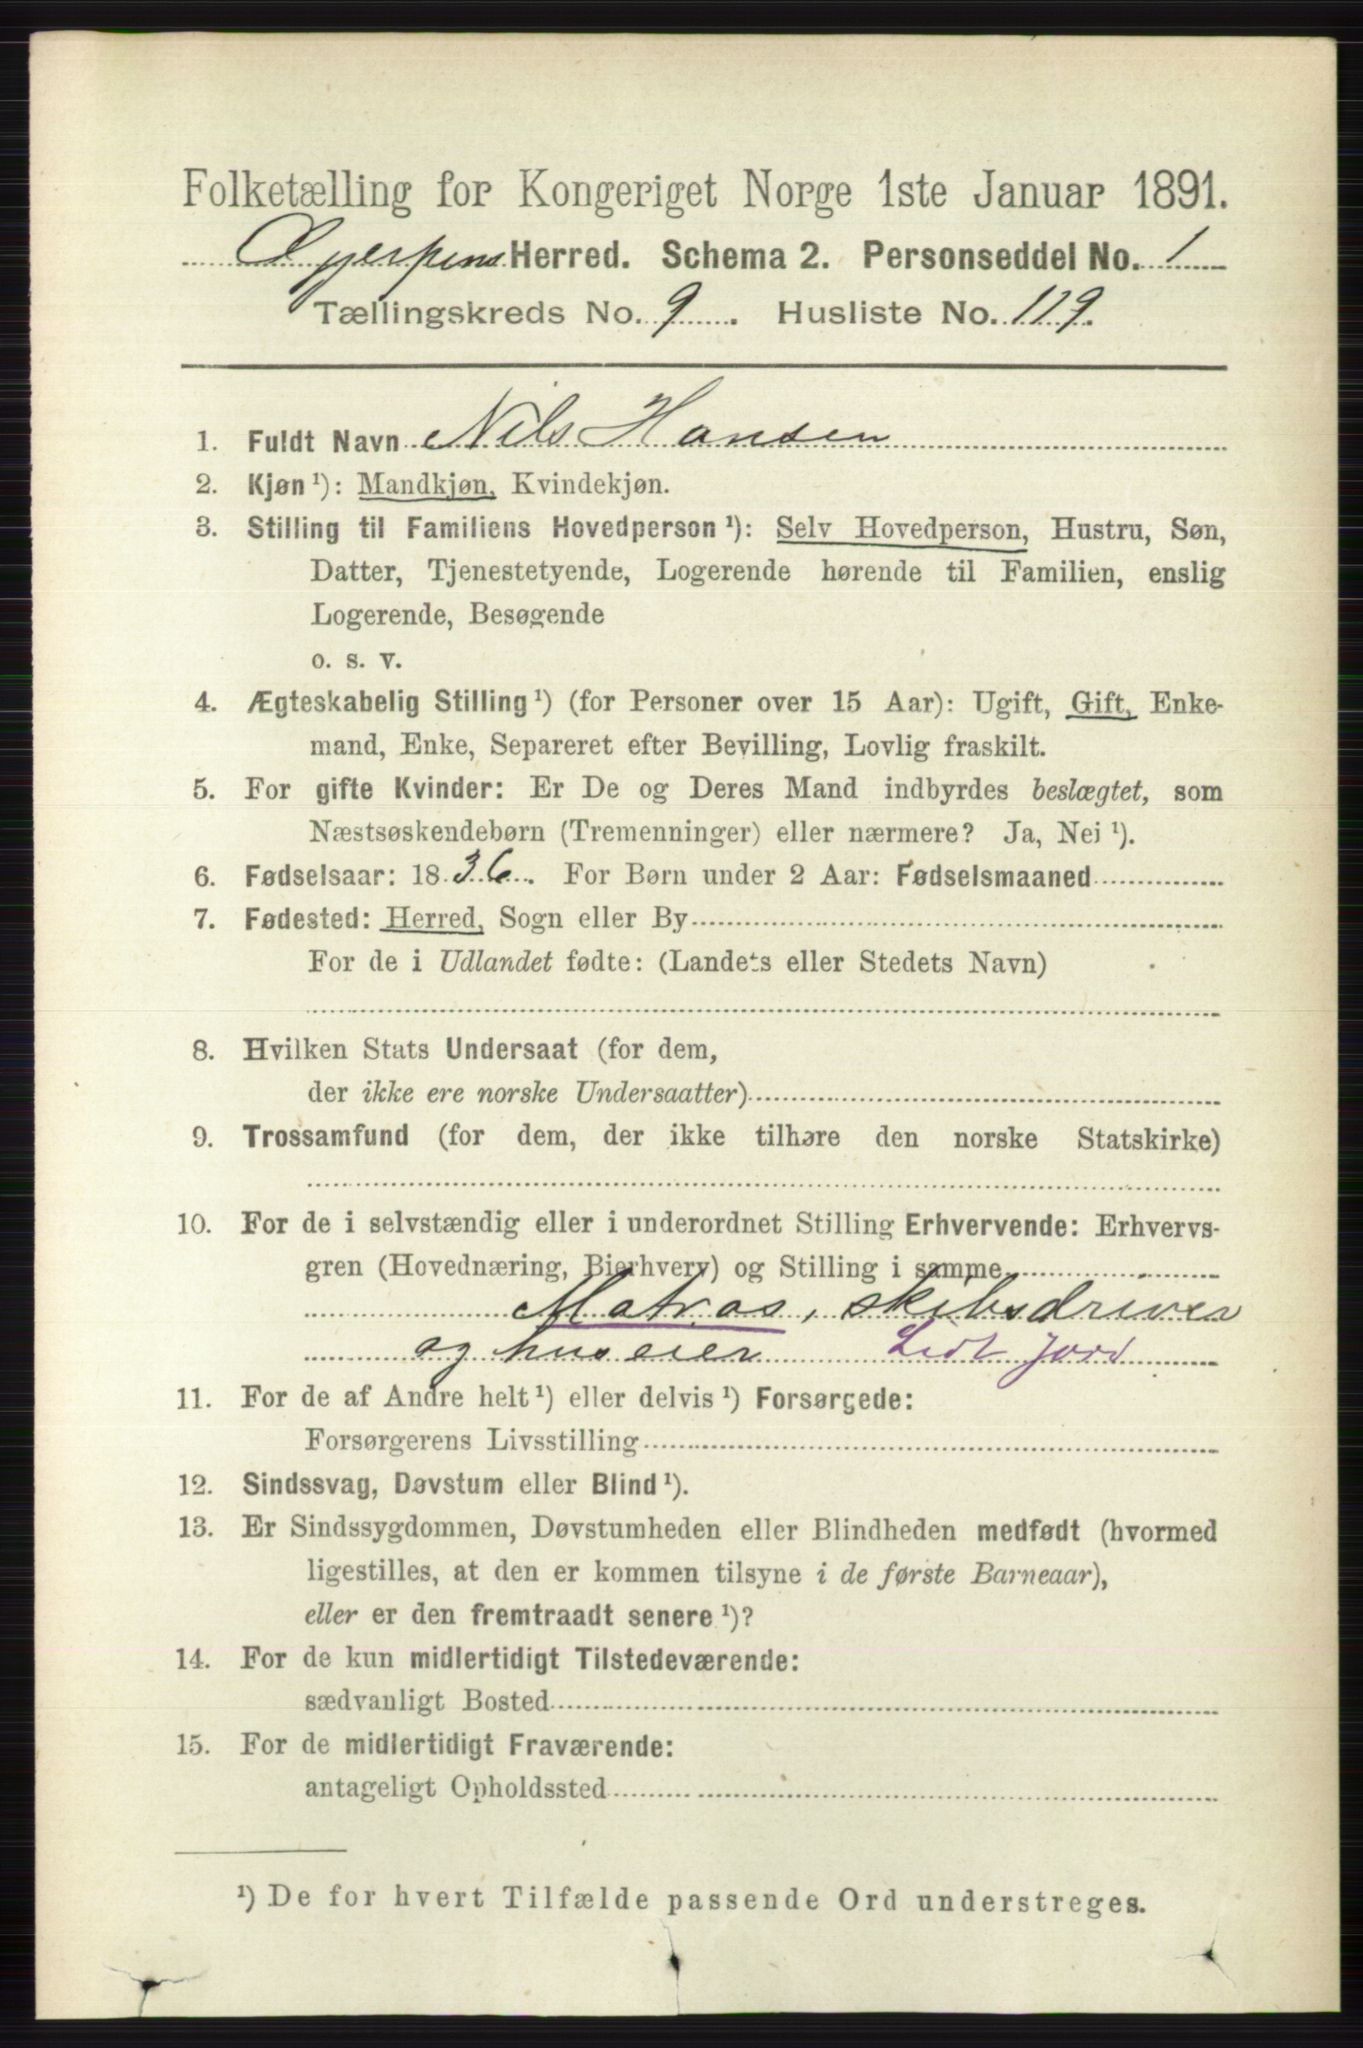 Folketælling for Kongeriget Norge 1ste Januar 1891.
Gjerpens Herred. Schema 2. Personseddel No. 1
Tællingskreds No. 9. Husliste No. 119.
1. Fuldt Navn Nils Hansen
2. Kjøn ¹): Mandkjøn, Kvindekjøn.
3. Stilling til Familiens Hovedperson ¹): Selv Hovedperson, Hustru, Søn,
Datter, Tjenestetyende, Logerende hørende til Familien, enslig
Logerende, Besøgende
o. s. v.
4. Ægteskabelig Stilling ¹) (for Personer over 15 Aar): Ugift, Gift, Enke-
mand, Enke, Separeret efter Bevilling, Lovlig fraskilt.
5. For gifte Kvinder: Er De og Deres Mand indbyrdes beslægtet, som
Næstsøskendebørn (Tremenninger) eller nærmere? Ja, Nei ¹).
6. Fødselsaar: 1836. For Børn under 2 Aar: Fødselsmaaned
7. Fødested: Herred, Sogn eller By
For de i Udlandet fødte: (Landets eller Stedets Navn)
8. Hvilken Stats Undersaat (for dem,
der ikke ere norske Undersaatter)
9. Trossamfund (for dem, der ikke tilhøre den norske Statskirke)
10. For de i selvstændig eller i underordnet Stilling Erhvervende: Erhvervs-
gren (Hovednæring, Bierhverv) og Stilling i samme
Matros, skibsdriver
og huseier Lidt jord
11. For de af Andre helt ¹) eller delvis ¹) Forsørgede:
Forsørgerens Livsstilling
12. Sindssvag, Døvstum eller Blind ¹).
13. Er Sindssygdommen, Døvstumheden eller Blindheden medfødt (hvormed
ligestilles, at den er kommen tilsyne i de første Barneaar),
eller er den fremtraadt senere ¹)?
14. For de kun midlertidigt Tilstedeværende:
sædvanligt Bosted
15. For de midlertidigt Fraværende:
antageligt Opholdssted
¹) De for hvert Tilfælde passende Ord understreges.